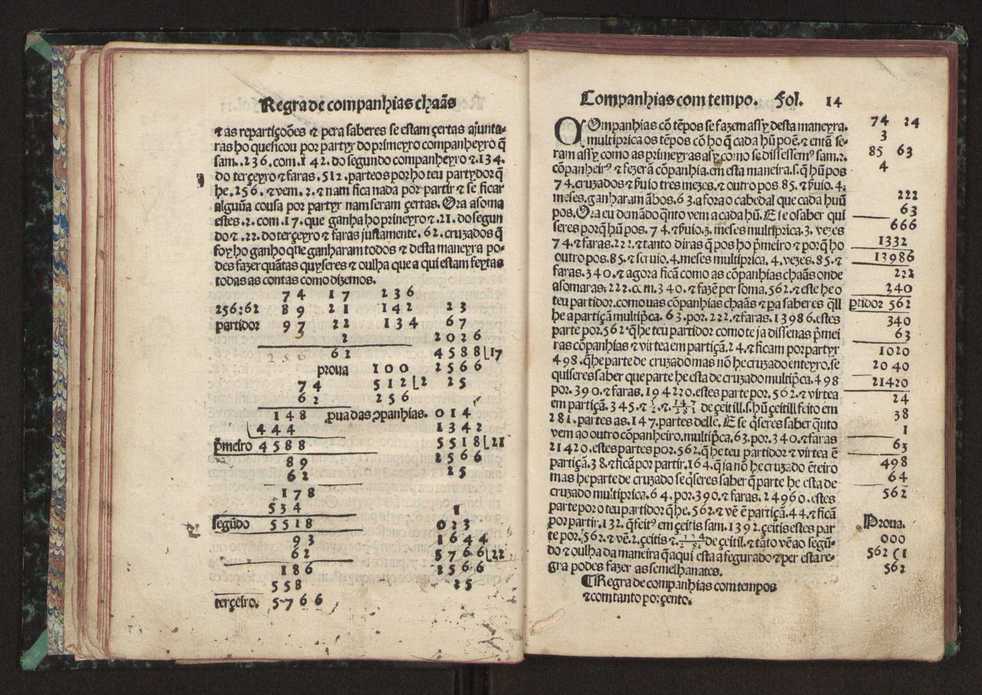 Regra de companhias chaãs
⁊ as repartiçoões ⁊ pera saberes se estam çertas ajunta-
ras ho que ficou por partyr do primeyro companheyro q̃
sam..236.com.142.do segundo companheyro ⁊.134.
do terçeyro ⁊ faras.512.parteos por ho teu partydor q̃
he.256.⁊ vem.2.⁊ nam fica nada por partir ⁊ se ficar
algũa cousa por partyr nam seram çertas. Ora asoma
estes.2.com.17.que ganha ho primeyro ⁊.21.do segun
do ⁊.22.do terçeyro ⁊ faras justamente.62.cruzados q̃
foy ho ganho que ganharam todos ⁊ desta maneyra po-
des fazer quãtas quyseres ⁊ oulha que a qui estam feytas
todas as contas como dizemos.
74 17 236
256:62 89 21 142 23
partidor 97 22 134 67
3 2 2026
256 62 4588⌊17
prova 100 2566
74 512⌊2 25
62 256
148 ꝓua das ꝯpanhias. 014
444 1342
p̃meiro 4588 5518⌊21
89 2566
62 25
178
534 1
segũdo 5518 023
93 1644
62 5766⌊22
186 2566
558 25
terçeiro. 5766
Companhias com tempo. Fol. 14
COmpanhias cõ tẽpos se fazem assy desta maneyra.
multiprica os tẽpos cõ ho q̃ cada hũ poẽ.⁊ entã se-
ram assy como as primeyras asy como se dissessem sam.2.
cõpanheir⁹ ⁊ fezerã cõpanhia.em esta maneira.s.q̃ hũ pos
74.cruzados ⁊ ħuio tres mezes.⁊ outro pos 85.⁊ ħuio.4.
meses.ganharam ãbos.63.afora o cabedal que cada huũ
pos. Ora eu demãdo q̃nto vem a cada hũ. E se o saber qui
seres porq̃ hũ pos.74.⁊ ħuio.3.meses multiprica.3.vezes
74.⁊ faras.222.⁊ tanto diras q̃ pos ho p̃meiro ⁊ por q̃ ho
outro pos.85.⁊ seruio.4.meses multiprica.4.vezes.85.⁊
faras.340.⁊ agora ficã como as cõpanhias chaãs onde
asomaras.222.cõ.340.⁊ fazẽ per soma.562.⁊ este he o
teu partidor.como uas cõpanhias chaãs ⁊ pa saberes q̃ll
he a partiçã multipca.63.por.222.⁊ faras.13986.estes
parte por.562 q̃ he teu partidor como te ja disse nas p̃mei
ras cõpanhias ⁊ vir tea em partiçã.24.⁊ ficam por partyr
498.q̃ he parte de cruzado mas nõ he cruzado enteyro.se
quiseres saber que parte he esta de cruzado multip̃ca.498
por.390.⁊ faras.194220.estes parte por.562.⁊ vir tea
em partiçã.345.⁊ ½.⁊. de çeitill.s.hũ çeitill feito em
281.partes as.147.partes delle. E se q̃seres saber q̃nto
vem ao outro cõpanheiro.multip̃ca.63.por.340.⁊ faras
21420.estes partes por.562.q̃ he teu partidor ⁊ vir tea ẽ
partiçã.38.⁊ ficã por partir.164.q̃ ja nõ he cruzado ẽteiro
mas he parte de cruzado se q̃seres saber q̃ parte he esta de
cruzado multiprica.64.por.390.⁊ faras.24960.estes
parte por o teu partidor q̃ he.562.⁊ vẽ ẽ partiçã.44.⁊ ficã
por partir.132.q̃ feit⁹ em çeitis sam.1392.çeitis estes par
te por.562.⁊ vẽ.2.çeitis ⁊. de çeitil.⁊ tãto vẽ ao segũ-
do ⁊ oulha da maneira q̃ aqui esta afegurado ⁊ per esta re-
gra podes fazer as semelhãtes.
¶ Regra de companhias com tempos
⁊ com tanto por çento.
74 24
3
85 63
4
222
63
666
1332
13986
222
240
ptidor 562
340
63
1020
2040
21420
24
38
1
63
498
64
562
Prova.
000
562 (1
562